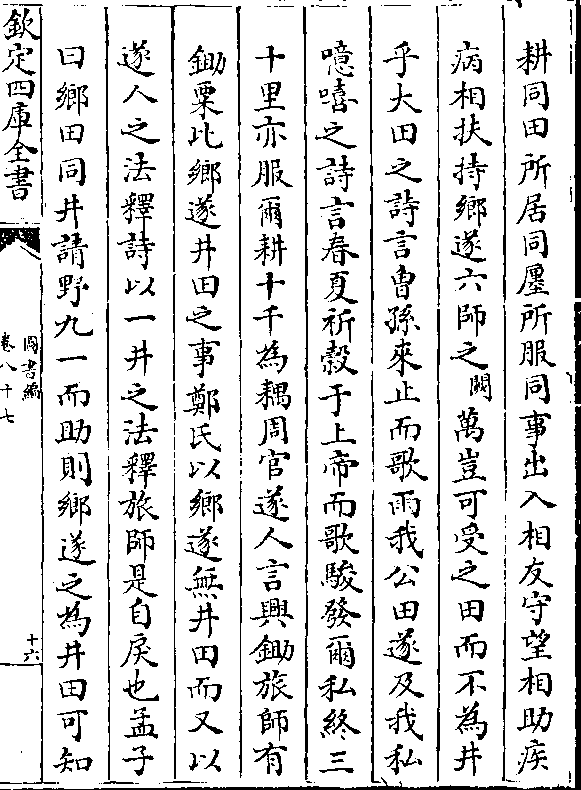 耕同田所居同廛所服同事出入相友守望相助疾
病相扶持鄉遂六師之闕萬豈可受之田而不為井
乎大田之詩言曾孫來止而歌雨我公田遂及我私
噫嘻之詩言春夏祈穀于上帝而歌駿發爾私終三
十里亦服爾耕十千為耦周官遂人言興鋤旅師有
鋤粟此鄉遂井田之事鄭氏以鄉遂無井田而又以
遂人之法釋詩以一井之法釋旅師是自戾也孟子
曰鄉田同井請野九一而助則鄉遂之為井田可知
欽定四庫全書
圖書編
卷八十七
十六